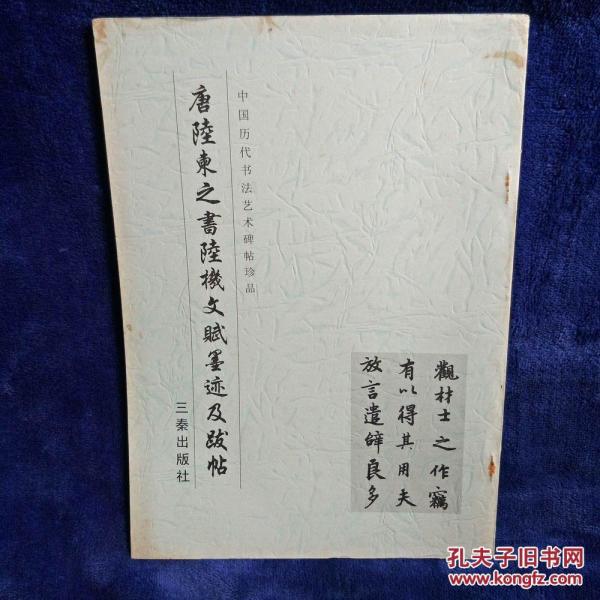 中国历代书法艺术碑帖珍品
唐陸柬之書陸機文賦墨迹及跋帖
三秦出版社
觀材士之作竊
有以得其用夫
放言遣辭良多
孔夫子旧书网
www.kongfz.com